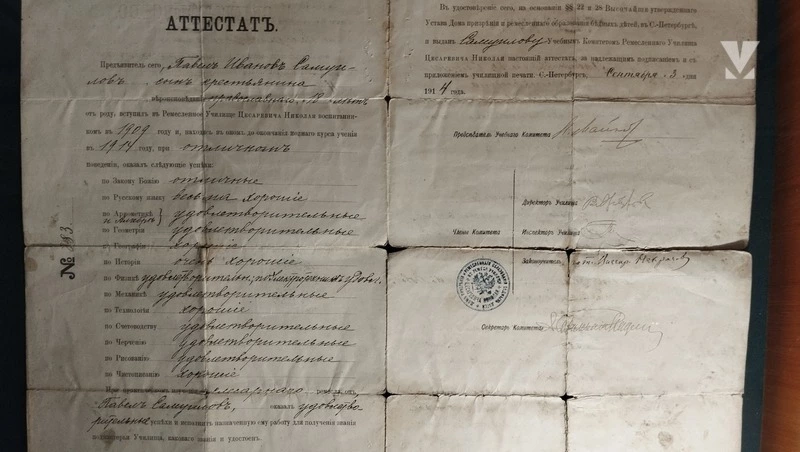 АТТЕСТАТЪ.
Предъявитель сего, Павелъ Ивановъ Самуи-
ловъ сынъ крестьянина
вѣроисповѣданія православнаго, 12 лѣтъ
отъ роду, вступилъ въ Ремесленное Училище Цесаревича Николая воспитанни-
комъ въ 1909 году и, находясь въ ономъ до окончанія полнаго курса ученія
въ 1914 году, при отличномъ
поведеніи, оказалъ слѣдующіе успѣхи:
по Закону Божію отличные
по Русскому языку весьма хорошіе
по Ариѳметикѣ и Алгебрѣ } удовлетворительные
по Геометріи удовлетворительные
по Географіи хорошіе
по Исторіи очень хорошіе
по Физикѣ удовлетворительн., по Электротехникѣ удовл.
по Механикѣ удовлетворительные
по Технологіи хорошіе
по Счетоводству удовлетворительные
по Черченію удовлетворительные
по Рисованію удовлетворительные
по Чистописанію хорошіе
При слесарнаго
Павелъ Самуиловъ, оказалъ удовлетво-
рительные успѣхи и исполнилъ назначенную ему работу для полученія званія
подмастерья Училища, каковаго званія и удостоенъ.
№ 283
Въ удостовѣреніе сего, на основаніи §§ 22 и 28 Высочайше утвержденнаго
Устава Дома призрѣнія и ремесленнаго образованія бѣдныхъ дѣтей, въ С.-Петербургѣ,
и выданъ Самуилову Учебнымъ Комитетомъ Ремесленнаго Училища
Цесаревича Николая настоящій аттестатъ, за надлежащимъ подписаніемъ и съ
приложеніемъ училищной печати. С.-Петербургъ, Сентября 3 дня
1914 года.
Предсѣдатель Учебнаго Комитета
Директоръ Училища
Члены Комитета
Инспекторъ Училища
Законоучитель
Секретарь Комитета